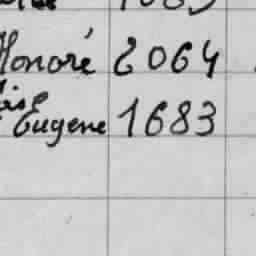 Honoré 2064
Eugene 1683